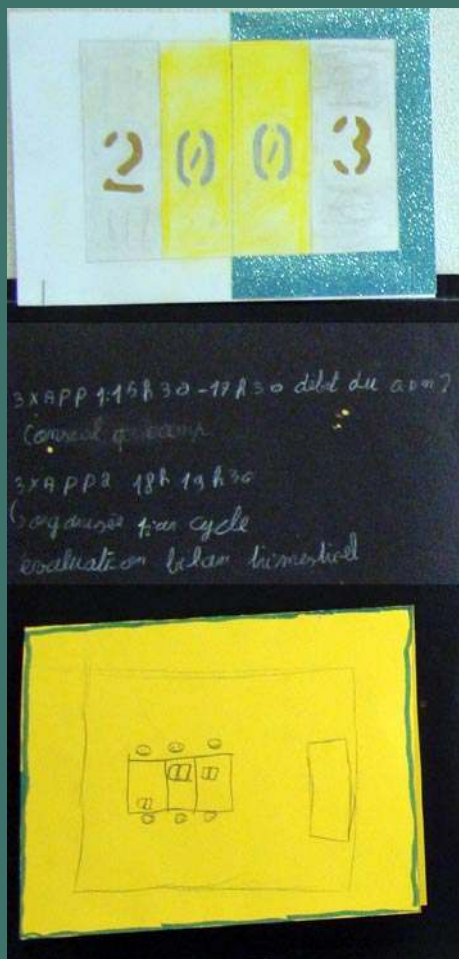 2003
3XAPP 1:15h30-17h30 début du
Conseil
3XAPP2 18h 19h30
organisée par cycle
evaluation bilan trimestriel